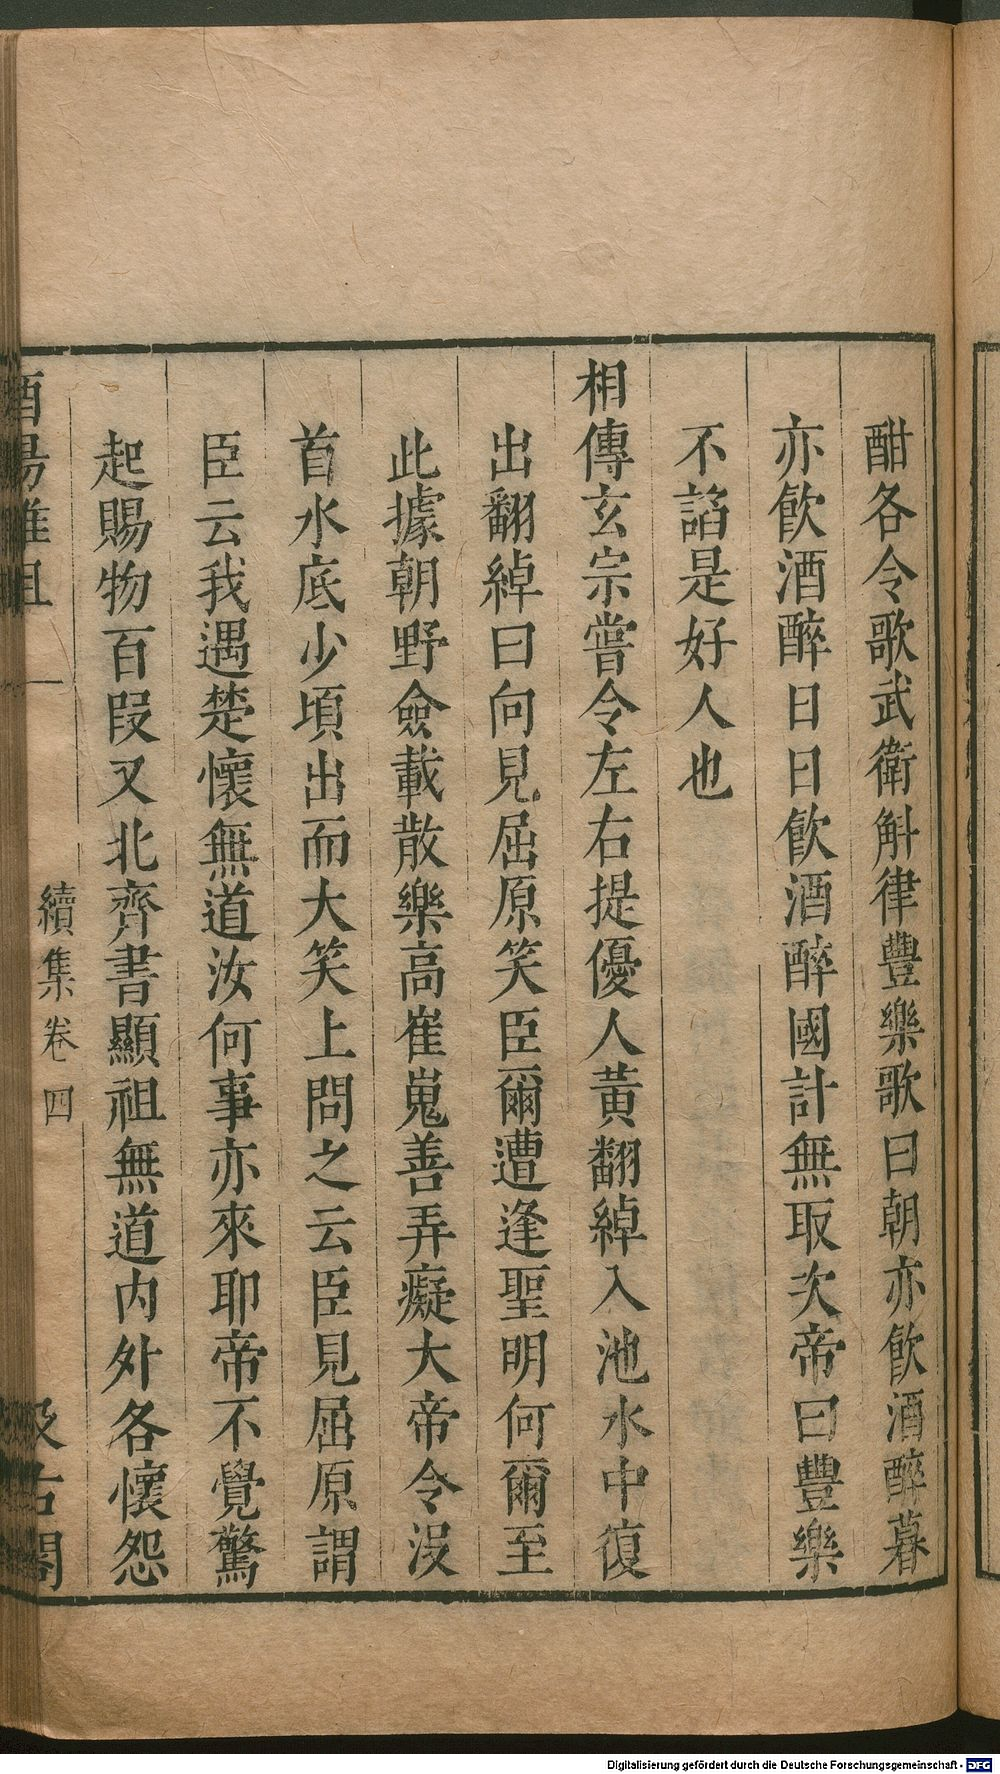 酣各令歌武衛斛律豐樂歌曰朝亦飮酒醉暮
亦飮酒醉日日飮酒醉國計無取次帝曰豐樂
不諂是好人也
相傳玄宗嘗令左右提優人黃翻綽入池水中復
出翻綽曰向見屈原笑臣爾遭逢聖明何爾至
此據朝野僉載散樂高崔嵬善弄癡大帝令沒
首水底少頃出而大笑上問之云臣見屈原謂
臣云我遇楚懷無道汝何事亦來耶帝不覺驚
起賜物百段又北齊書顯祖無道内外各懷怨
酉陽雜俎 續集卷四 汲古閣
Digitalisierung gefördert durch die Deutsche Forschungsgemeinschaft - DFG